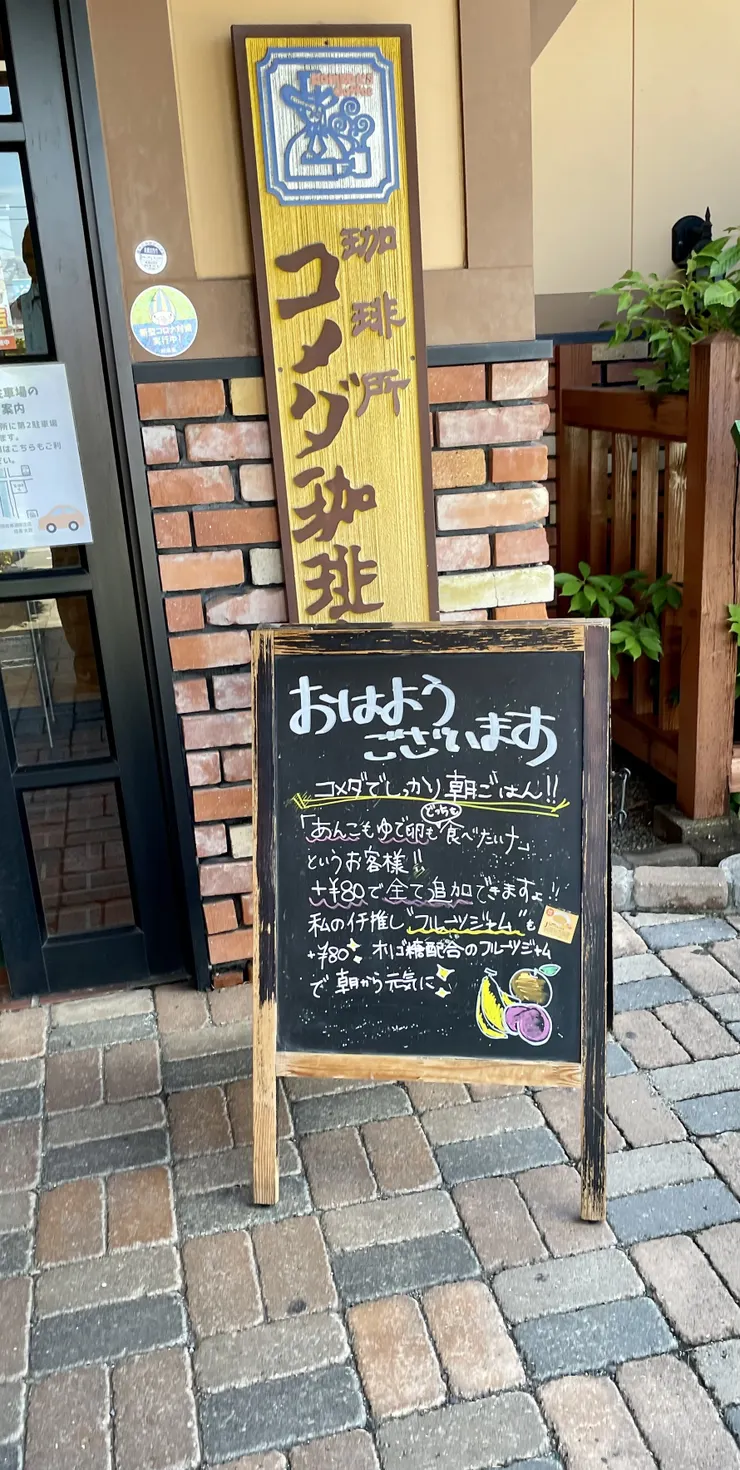 KOMEDA'S
Coffee
珈琲所
コメダ珈琲
新型コロナ対策
実行中!
駐車場の
案内
所に第2駐車場
ます。
はこちらもご利
さい。
おはよう
ございます
コメダでしっかり朝ごはん!!
どっちも
「あんこもゆで卵も食べたいナ」
というお客様!!
+¥80で全て追加できますよ!!
私のイチ推し"フルーツジャム"も
+¥80 オリゴ糖配合のフルーツジャム
で朝から元気に